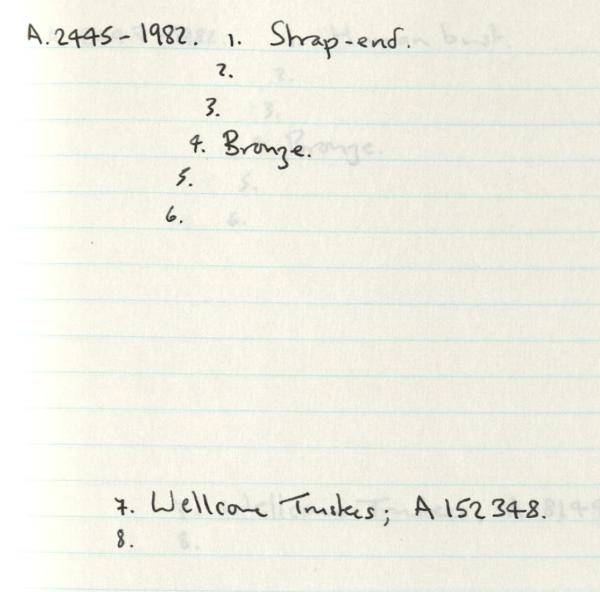 A.2445-1982. 1. Strap-end.
2.
3.
4. Bronze.
5.
6.
7. Wellcome Trustees; A 152348.
8.